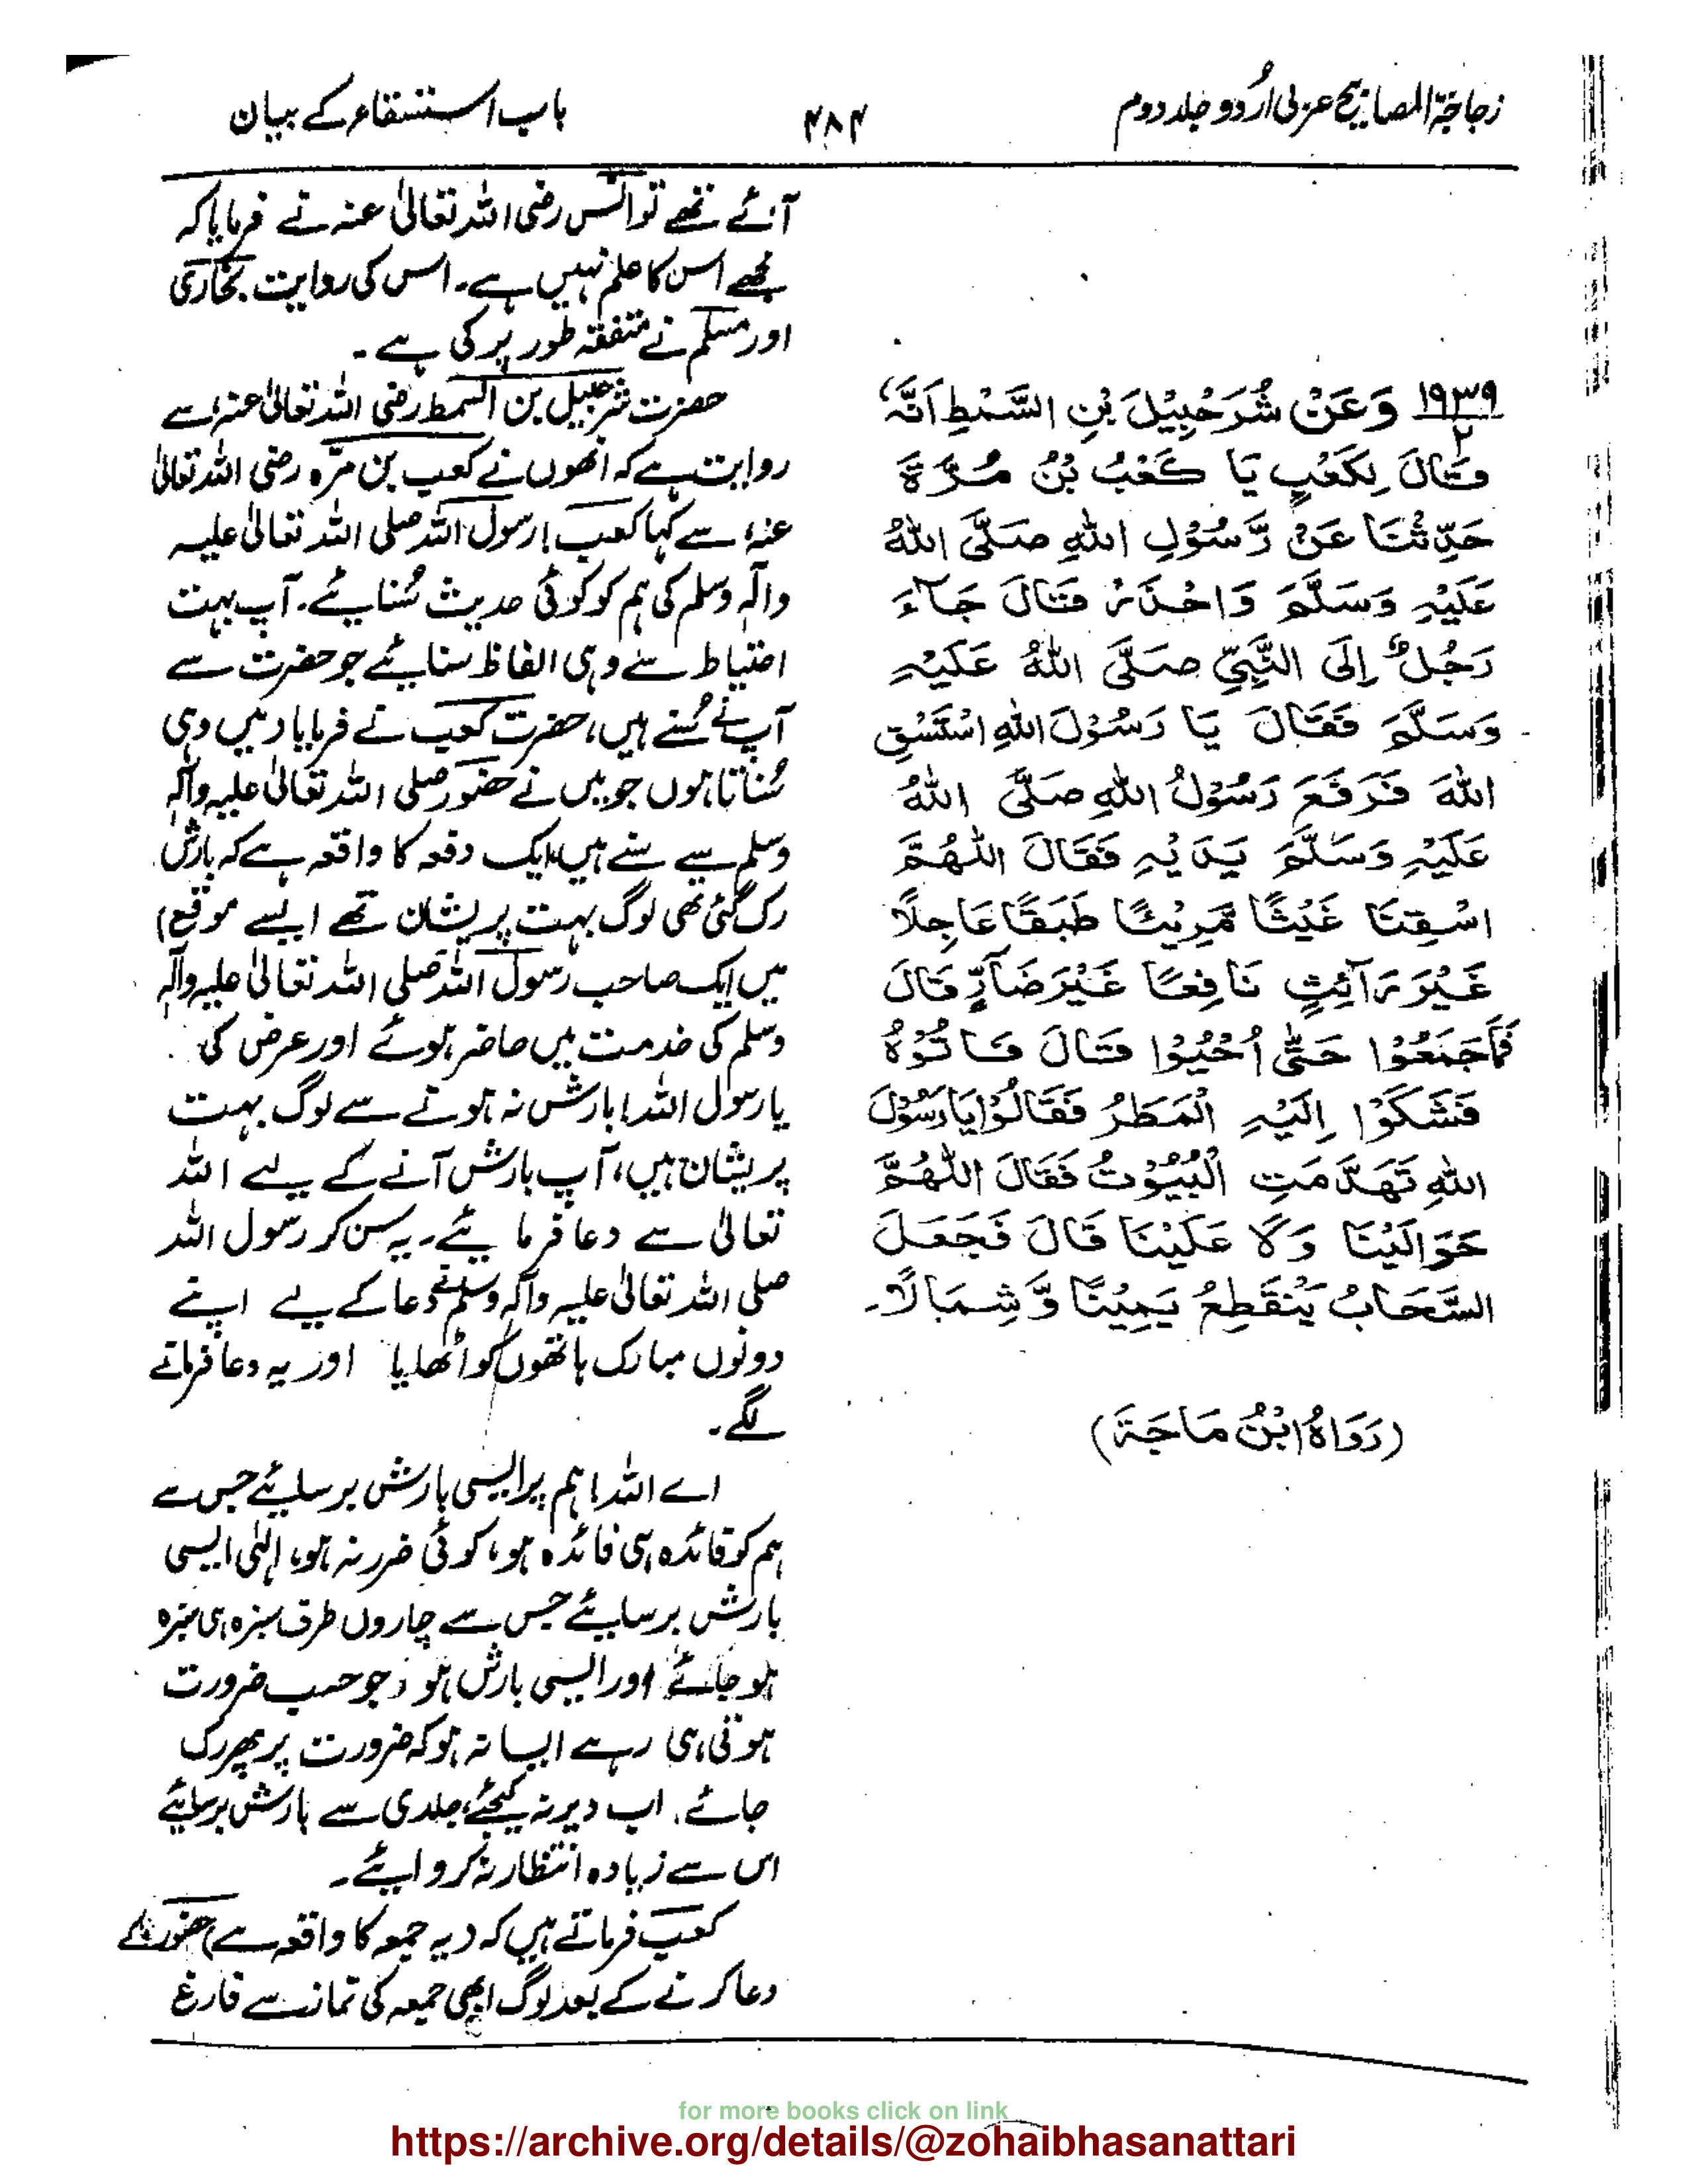 زجاجۃ المصابیح عربی اُردو جلد دوم
۴۸۴
باب استسقاء کے بیان
وَعَنْ شُرَحْبِيْلَ بْنِ السَّمْطِ اَنَّهٗ ۱۹۳۹/۲
قَالَ لِكَعْبٍ يَا كَعْبُ بْنُ مُرَّةَ
حَدِّثْنَا عَنْ رَّسُوْلِ اللهِ صَلَّى اللهُ
عَلَيْهِ وَسَلَّمَ وَاحْذَرْ قَالَ جَآءَ
رَجُلٌ اِلَى النَّبِيِّ صَلَّى اللهُ عَلَيْهِ
وَسَلَّمَ فَقَالَ يَا رَسُوْلَ اللهِ اسْتَسْقِ
اللهَ فَرَفَعَ رَسُوْلُ اللهِ صَلَّى اللهُ
عَلَيْهِ وَسَلَّمَ يَدَيْهِ فَقَالَ اللّٰهُمَّ
اسْقِنَا غَيْثًا مَّرِيْئًا طَبَقًا عَاجِلًا
غَيْرَ رَآئِثٍ نَافِعًا غَيْرَ ضَآرٍّ قَالَ
فَمَا جَمَعُوْا حَتّٰى اُحْيُوْا قَالَ فَاتَوْهُ
فَشَكَوْا اِلَيْهِ الْمَطَرُ فَقَالُوْا يَا رَسُوْلَ
اللهِ تَهَدَّمَتِ الْبُيُوْتُ فَقَالَ اللّٰهُمَّ
حَوَالَيْنَا وَلَا عَلَيْنَا قَالَ فَجَعَلَ
السَّحَابُ يَنْقَطِعُ يَمِيْنًا وَّشِمَالًا۔
(رَوَاهُ ابْنُ مَاجَةَ)
آئے تھے تو انس رضی اللہ تعالیٰ عنہ نے فرمایا کہ
مجھے اس کا علم نہیں ہے۔ اس کی روایت بخاری
اور مسلم نے متفقہ طور پر کی ہے۔
حضرت شرحبیل بن السمط رضی اللہ تعالیٰ عنہ، سے
روایت ہے کہ انھوں نے کعب بن مرہ رضی اللہ تعالیٰ
عنہ، سے کہا کعب! رسول اللہ صلی اللہ تعالیٰ علیہ
وآلہٖ وسلم کی ہم کو کوئی حدیث سُنائیے۔ آپ بہت
احتیاط سے وہی الفاظ سنائیے جو حضرت سے
آپ نے سُنے ہیں، حضرت کعب نے فرمایا (میں وہی
سُناتا ہوں جو میں نے حضور صلی اللہ تعالیٰ علیہ وآلہٖ
وسلم سے سنے ہیں ایک دفعہ کا واقعہ ہے کہ بارش
رک گئی تھی لوگ بہت پریشان تھے ایسے موقع)
میں ایک صاحب رسول اللہ صلی اللہ تعالیٰ علیہ وآلہٖ
وسلم کی خدمت میں حاضر ہوئے اور عرض کی
یا رسول اللہ! بارش نہ ہونے سے لوگ بہت
پریشان ہیں، آپ بارش آنے کے لیے اللہ
تعالیٰ سے دعا فرمائیے۔ یہ سن کر رسول اللہ
صلی اللہ تعالیٰ علیہ وآلہٖ وسلم نے دعا کے لیے اپنے
دونوں مبارک ہاتھوں کو اٹھایا اور یہ دعا فرمانے
لگے۔
اے اللہ! ہم پر ایسی بارش برسائیے جس سے
ہم کو فائدہ ہی فائدہ ہو، کوئی ضرر نہ ہو، الٰہی ایسی
بارش برسائیے جس سے چاروں طرف سبزہ ہی سبزہ
ہو جائے اور ایسی بارش ہو جو حسب ضرورت
ہوتی ہی رہے ایسا نہ ہو کہ ضرورت پر پھر رک
جائے۔ اب دیر نہ کیجئے، جلدی سے بارش برسائیے
اس سے زیادہ انتظار نہ کروائیے۔
کعب فرماتے ہیں کہ (یہ جمعہ کا واقعہ ہے) حضور کے
دعا کرنے کے بعد لوگ ابھی جمعہ کی نماز سے فارغ
for more books click on link
https://archive.org/details/@zohaibhasanattari